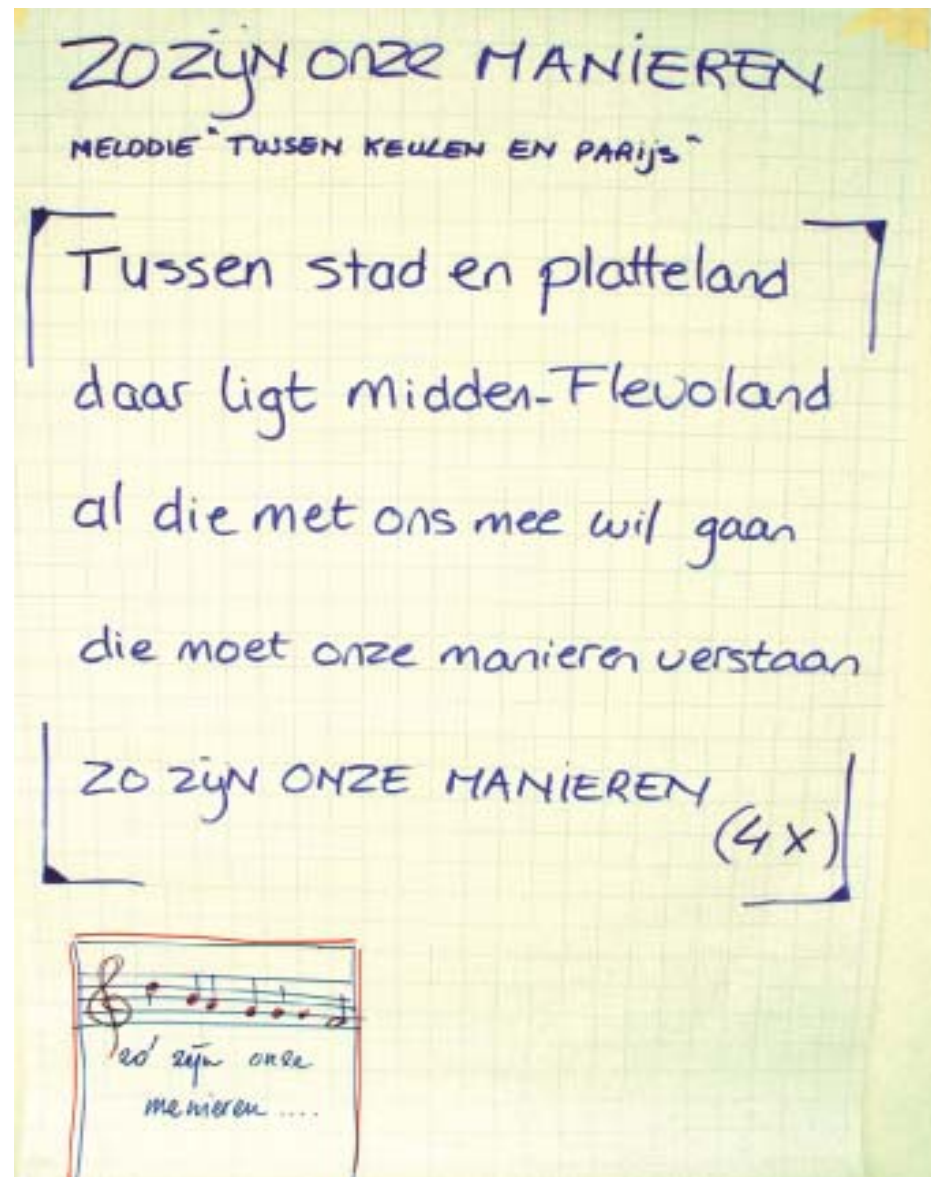 ZO ZIJN ONZE MANIEREN
MELODIE "TUSSEN KEULEN EN PARIJS"
Tussen stad en platteland
daar ligt Midden-Flevoland
al die met ons mee wil gaan
die moet onze manieren verstaan
ZO ZIJN ONZE MANIEREN
(4x)
zo' zijn onze
manieren ....